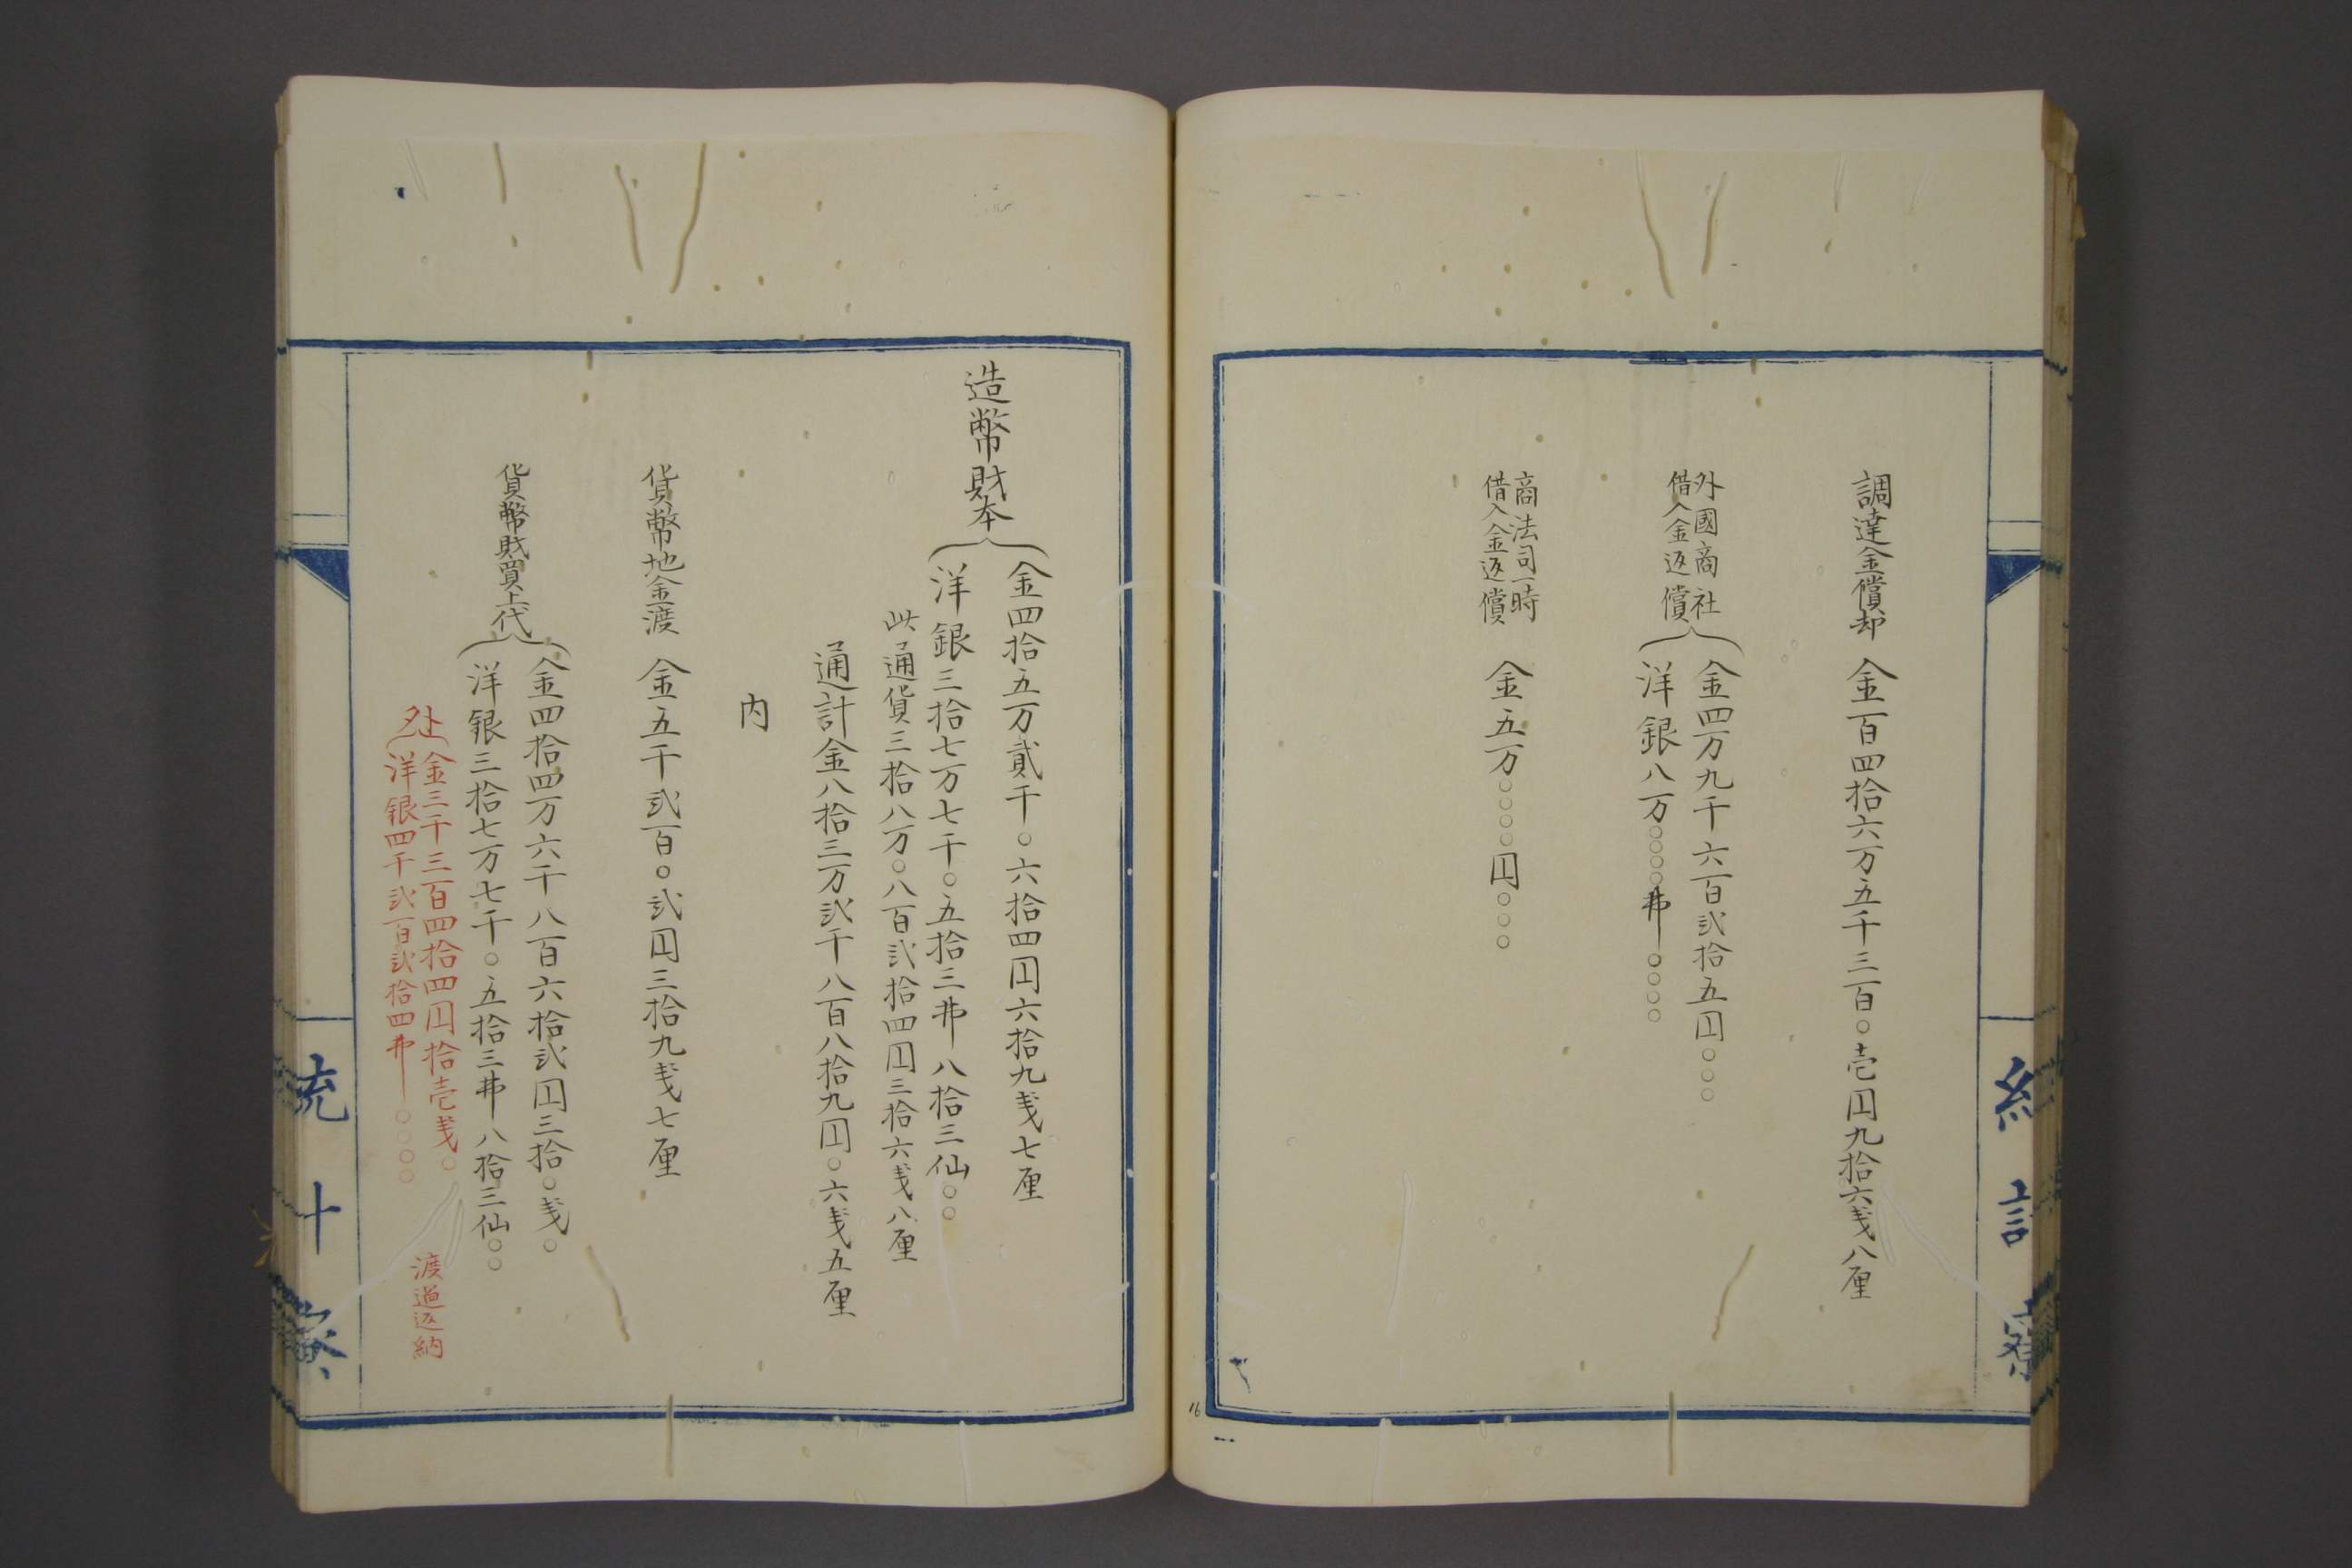 調達金償却 金百四拾六万五千三百〇壱円九拾六戋八厘
外國商社
借入金返償
金四万九千六百弐拾五円〇〇〇
洋銀八万〇〇〇〇弗〇〇〇〇
商法司一時
借入金返償
金五万〇〇〇〇円〇〇〇
造幣財本
金四拾五万貳千〇六拾四円六拾九戋七厘
洋銀三拾七万七千〇五拾三弗八拾三仙〇〇
此通貨三拾八万〇八百弐拾四円三拾六戋八厘
通計金八拾三万弐千八百八拾九円〇六戋五厘
内
貨幣地金渡 金五千弐百〇弐円三拾九戋七厘
貨幣財買上代
金四拾四万六千八百六拾弐円三拾〇戋〇
洋銀三拾七万七千〇五拾三弗八拾三仙〇〇
外
金三千三百四拾四円拾壱戋〇
洋銀四千弐百弐拾四弗〇〇〇〇
渡過返納
16